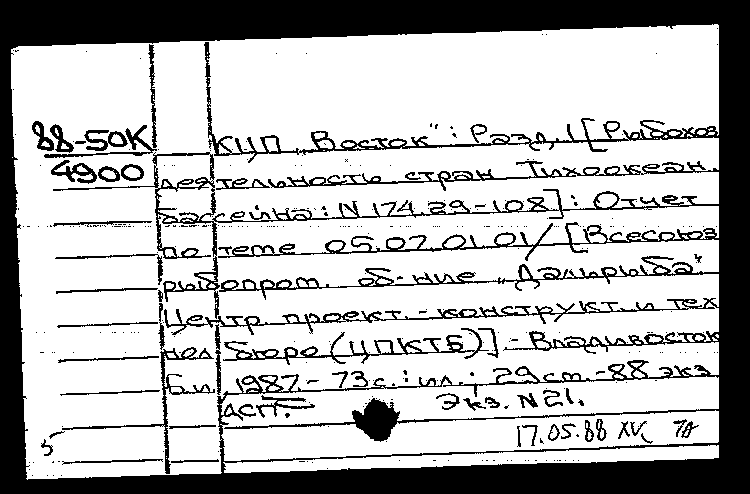 88-50К
4900
КЦП „Восток": Разд.1 [Рыбохоз
деятельность стран Тихоокеан.
бассейна: N 174.29-108]: Отчет
по теме 05.07.01.01/ [Всесоюз
рыбопром. об-ние „Дальрыба"
Центр. проект.-конструкт. и тех
нол бюро (ЦПКТБ)].- Владивосток
Б.и., 1987.- 73 с.: ил.; 29 см.-88 экз
ДСП. Экз. N 21.
17.05.88
5